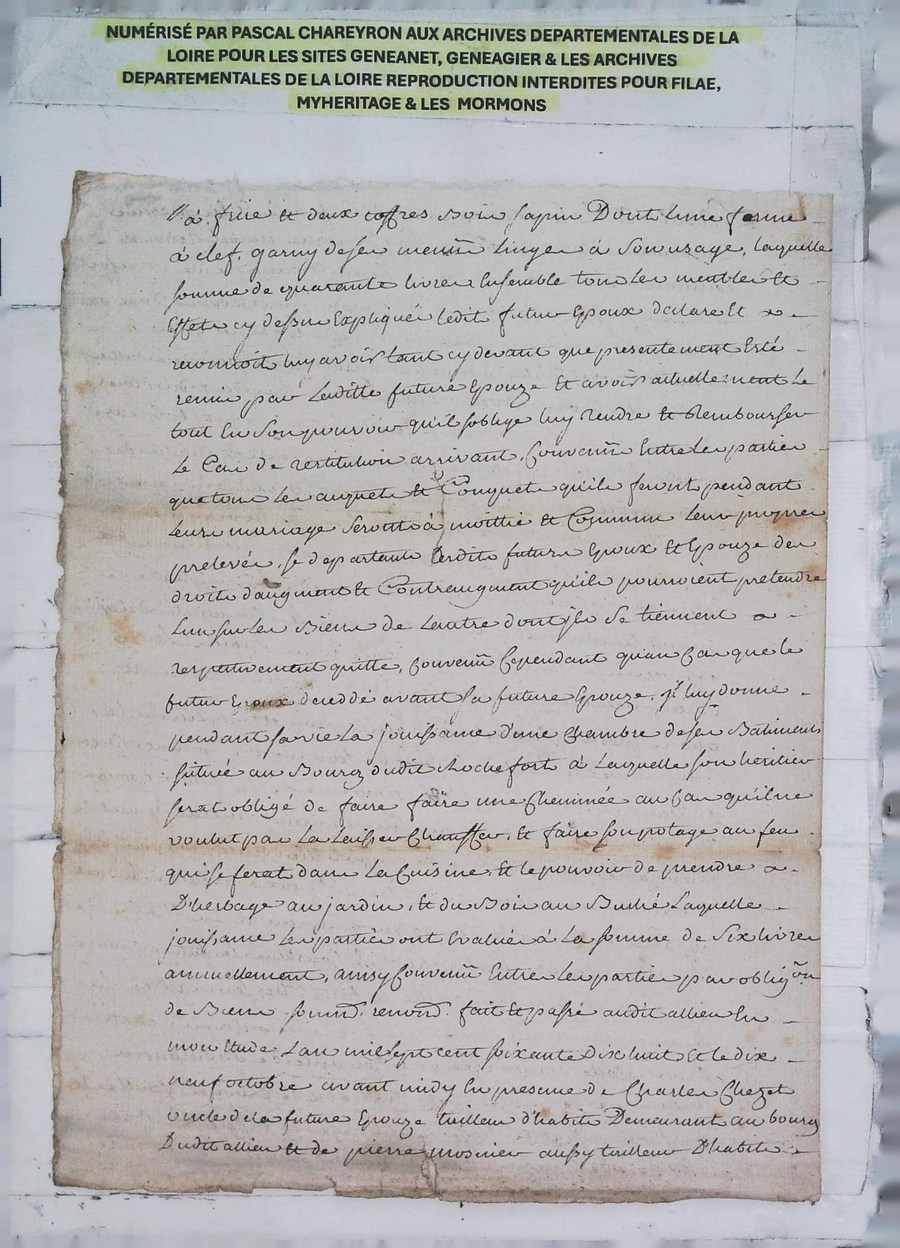 NUMÉRISÉ PAR PASCAL CHAREYRON AUX ARCHIVES DEPARTEMENTALES DE LA
LOIRE POUR LES SITES GENEANET, GENEAGIER & LES ARCHIVES
DEPARTEMENTALES DE LA LOIRE REPRODUCTION INTERDITES POUR FILAE,
MYHERITAGE & LES MORMONS
à frire et deux coffres Bois sapin Dont l'une ferme
à clef, garny de ses menus linges à Son usage, laquelle
somme de quarante livres Ensemble tous Les meubles Et
Effets cy dessus Expliqués ledit futur Epoux declare Et
reconnoit luy avoir tant cy devant que presentement Esté
remis par Laditte future Epouze Et avoir actuellement Le
tout En Son pouvoir qu'il soblige luy rendre et Rembourser
Le Cas de restitution arrivant, Convenû Entre Les parties
que tous Les acquets et Conquets qu'ils feront pendant
Leurs mariage Seront à moittié et Commun Leurs propres
prelevés, se departants Lesdits futurs Epoux Et Epouze des
droits d'augment et Contreaugment qu'ils pourroient pretendre
L'un sur Les Biens de Lautre dont jls se tiennent
respectivement quitte, Convenû Cependant qu'au Cas que le
futur Epoux decedde avant sa future Epouze, jl luy donne
pendant sa vie La jouissance d'une Chambre de ses Batiments
située au Bourg dudit Rochefort à Laquelle son heritier
serat obligé de faire faire une Cheminée au Cas qu'il ne
voulut pas La Laisser Chauffer, et faire son potage au feu
qui se ferat dans La Cuisine, Et le pouvoir de prendre
D'herbage au jardin, Et du Bois au Buché Laquelle
jouissance Les parties ont Evaluée à La somme de Six livres
annuellement, ainsy Convenû Entre Les parties par oblig.on
de Biens soumd. renond. fait Et passé audit allieu En
mon Etude L'an mil sept cent soixante Dix huit Et le dix
neuf octobre avant midy En presence de Charles Chezet
oncle de la future Epouze tailleur d'habits Demeurant au bourg
Dudit allieu et de pierre mosnier aussy tailleur D'habits